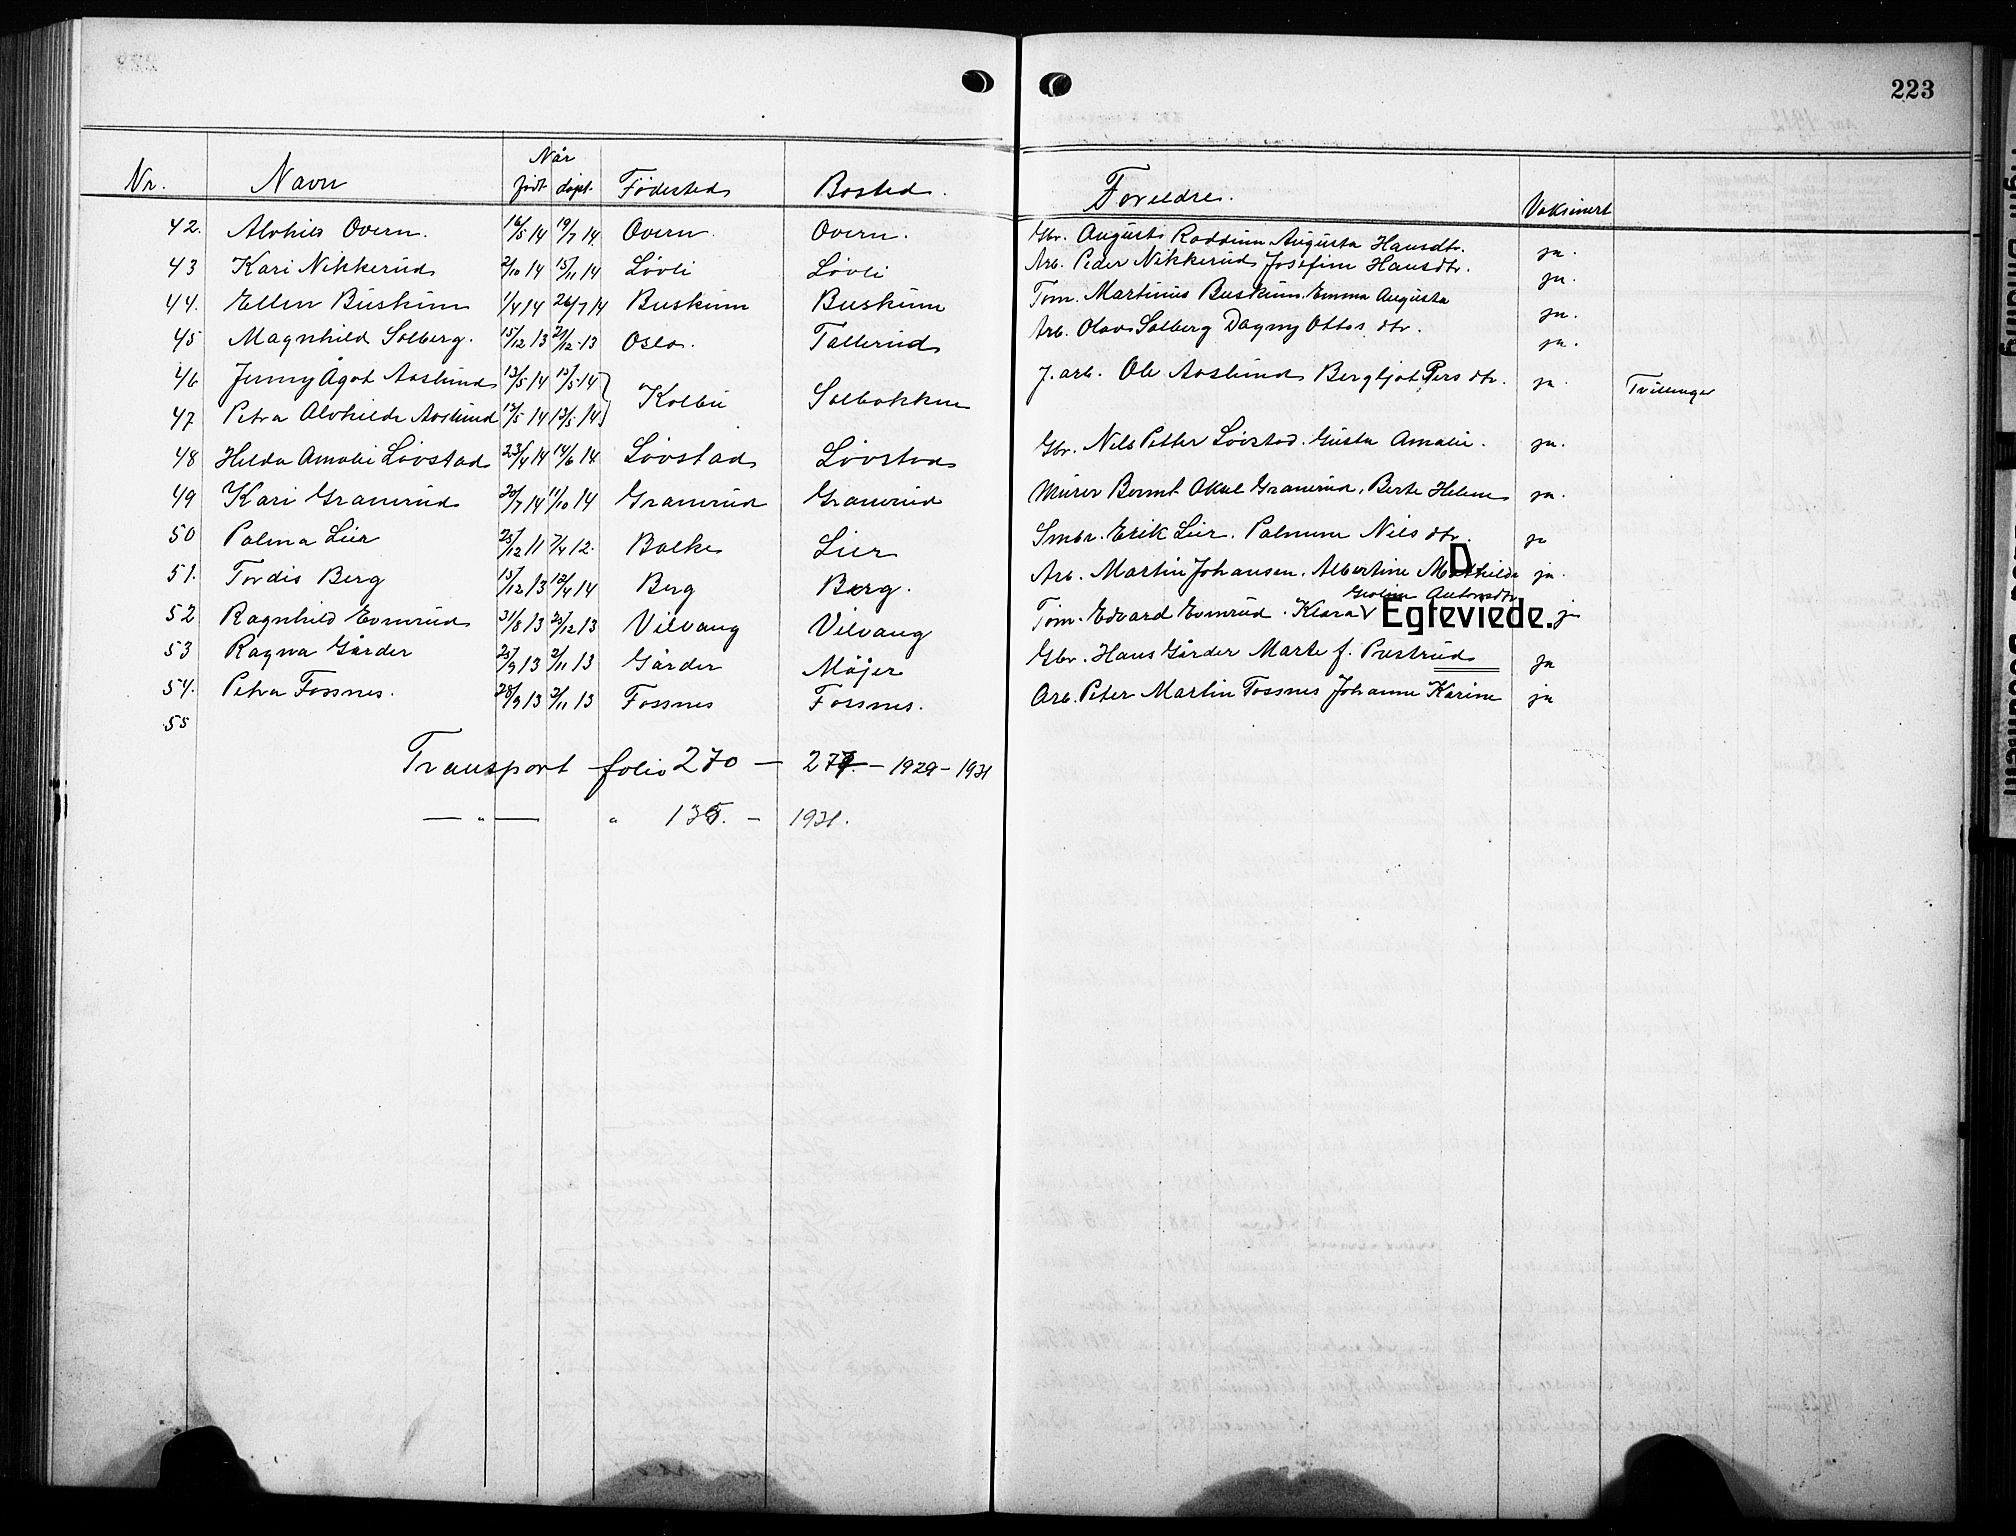 223
Nr. Navn Når født døpt. Fødested Bosted. Foreldre. Vaksinert
42. Alvhild Overn. 16/5 14 19/7 14 Overn. Overn. Gbr. August Roddum Augusta Hansdtr. ja.
43 Kari Nikkerud 2/10 14 15/11 14 Løvli Løvli Arb. Peder Nikkerud Josefine Hansdtr. ja.
44. Ellen Buskum 1/4 14 26/7 14 Buskum Buskum Tøm. Martinius Buskum. Emma Augusta ja.
45 Magnhild Solberg. 15/12 13 21/12-13 Oslo. Tallerud Arb. Olav Solberg Dagny Ottos dtr. ja.
46 Jenny Ågot Aaslund 13/5 14 15/5 14 Kolbu Solbakken J. arb. Ole Aaslund Bergljot Pers dtr. ja. Tvillinger
47 Petra Alvhilde Aaslund 13/5 14 13/5 14
48 Hilda Amalie Løvstad 23/4 14 14/6 14 Løvstad Løvstad Gbr. Nils Petter Løvstad. Gusta Amalie. ja.
49 Kari Granerud 20/7 14 11/10 14 Granerud Granerud Murer Bernt Aksel Granerud, Berte Helene ja.
50 Palma Lier 25/12 11 7/4 12. Balke Lier Smbr. Erik Lier. Palmine Nils dtr. ja
51. Tordis Berg 15/12 13 12/4 14 Berg Berg. Arb. Martin Johansen. Albertine Mathilde ja.
52 Ragnhild Evenrud 31/8 13 25/12 13 Vilvang Vilvang Tøm. Edvard Evenrud. Klara Antonsdtr ja
D
Egteviede.
53 Ragna Gårder 25/9 13 2/11 13 Gårder Møjer Gbr. Hans Gårder Marte f. Prestrud ja
54. Petra Fossnes. 28/9 13 2/11 13 Fossnes Fossnes. Arb. Peter Martin Fossnes Johanne Karine ja
55
Transport folio 270 — 277. — 1929 - 1931
— " — " 135. — 1931.